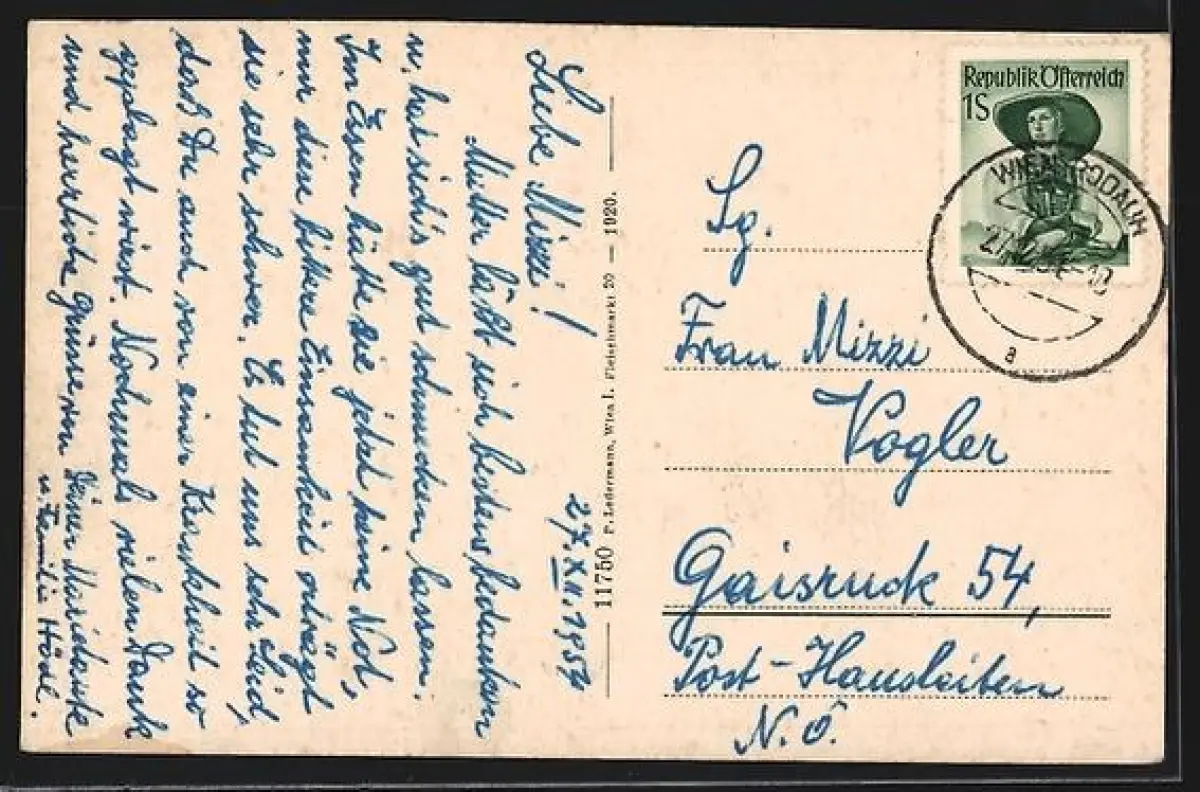 27. XII. 1954
Liebe Mizzi!
Mutter läßt sich bestens bedanken
u. hat sich's gut schmecken lassen.
Im Essen hätte sie jetzt keine Not,
nur diese bittere Einsamkeit erträgt
sie sehr schwer. Es tut uns sehr leid,
daß Du auch von einer Krankheit so
geplagt wirst. Nochmals vielen Dank
und herzliche Grüsse von Deiner
u. Familie Hödl.
11750 P. Ledermann, Wien I. Fleischmarkt 20 — 1920.
Republik Österreich
1S
WIEN-RODAUN
27.
10
a
Sg.
Frau Mizzi
Vogler
Gaisruck 54,
Post-Hausleiten
N.Ö.